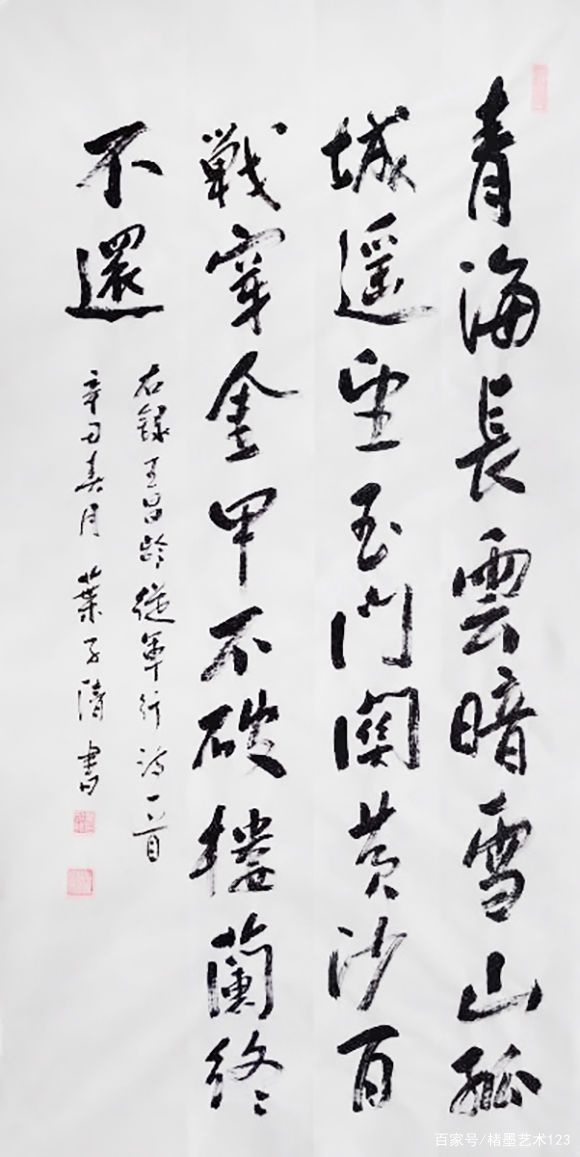 青海長雲暗雪山孤
城遥望玉門関黄沙百
戰穿金甲不破樓蘭終
不還
右録王昌龄從軍行诗一首
辛丑春月葉子清書
百家号/楮墨艺术123